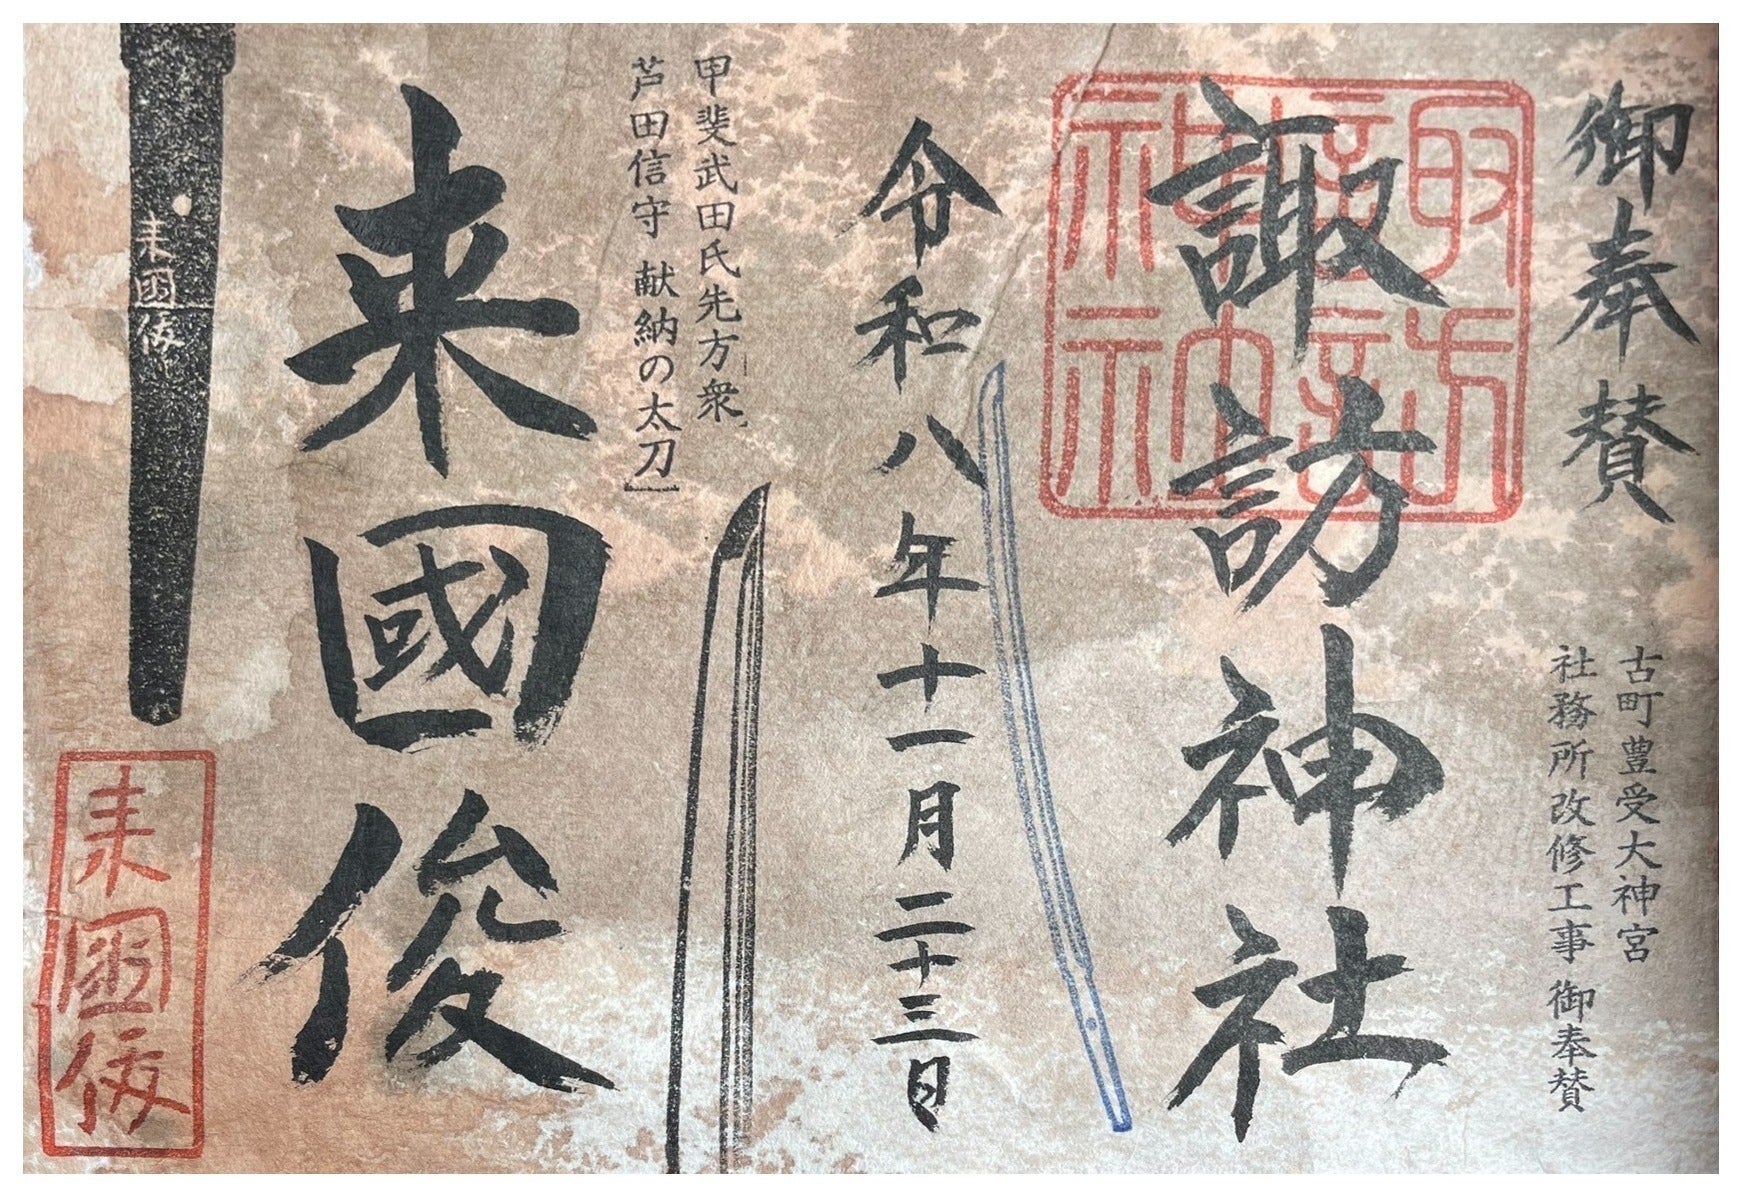 御奉賛
古町豊受大神宮
社務所改修工事 御奉賛
諏訪神社
諏訪神社
令和八年十一月二十三日
甲斐武田氏先方衆
芦田信守 献納の太刀
来國俊
来國俊
来國俊